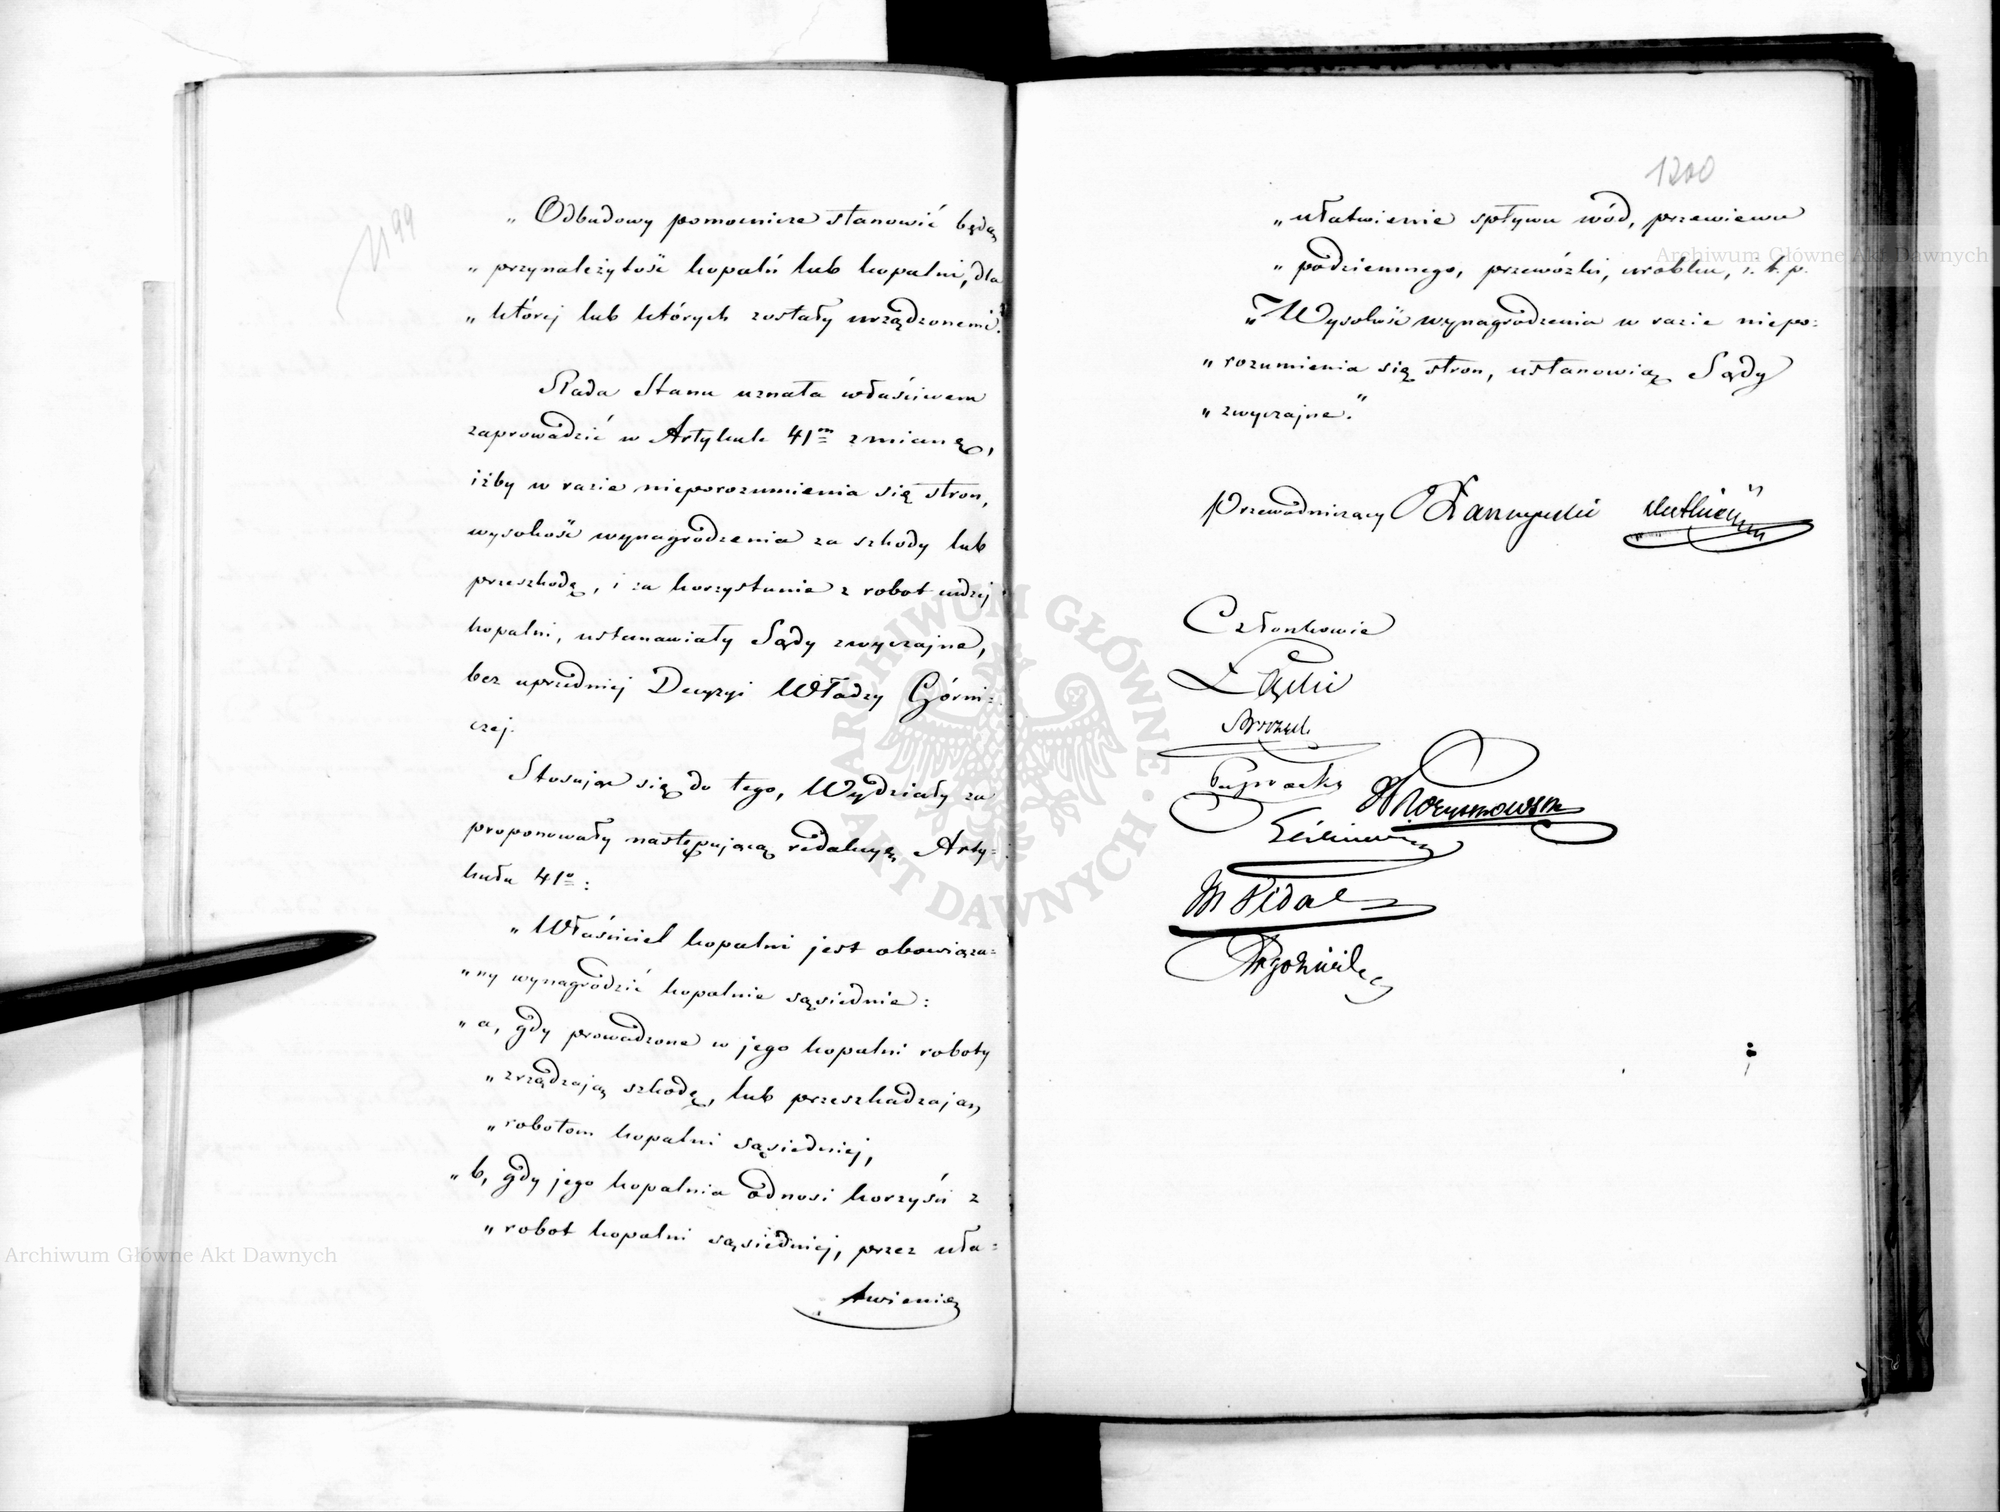 1199
„Odbudowy pomocnicze stanowić będą
„przynależytość kopalń lub kopalni, dla
„której lub których zostały urządzonemi."
Rada Stanu uznała właściwem
zaprowadzić w Artykule 41m zmianę,
iżby w razie nieporozumienia się stron,
wysokość wynagrodzenia za szkody lub
przeszkodę, i za korzystanie z robot cudzej
kopalni, ustanawiały Sądy zwyczajne,
bez uprzedniej Decyzyi Władzy Górni=
czej.
Stosując się do tego, Wydziały za
proponowały następującą redakcyą Arty=
kułu 41o:
„Właściciel kopalni jest obowiąza=
„ny wynagrodzić kopalnie sąsiednie:
„a, gdy prowadzone w jego kopalni roboty
„zrządzają szkodę, lub przeszkadzają
„robotom kopalni sąsiedniej,
„b, gdy jego kopalnia odnosi korzyść z
„robot kopalni sąsiedniej, przez uła=
twienie
1200
„ułatwienie spływu wód, przewiewu
„podziemnego, przewózki, urobku, i t. p.
„Wysokość wynagrodzenia w razie niepo=
„rozumienia się stron, ustanowią Sądy
„zwyczajne."
Przewodniczący
Członkowie
Archiwum Główne Akt Dawnych
Archiwum Główne Akt Dawnych
ARCHIWUM GŁÓWNE AKT DAWNYCH